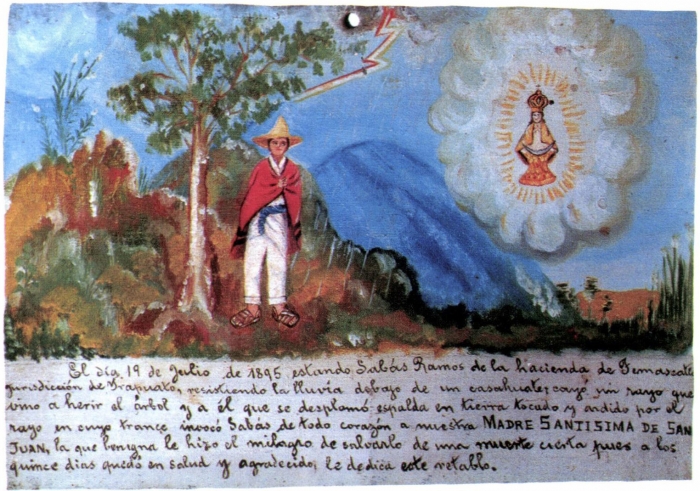 El día, 19 de Julio de 1895 estando Sabás Ramos de la hacienda de Temascatío
jurisdicción de Irapuato, resistiendo la lluvia debajo de un casahuate; cayó un rayo que
vino a herir el árbol y a él que se desplomó espalda en tierra tocado y ardido por el
rayo en cuyo trance invocó Sabás de todo corazón a nuestra MADRE SANTISIMA DE SAN
JUAN, la que benigna le hizo el milagro de salvarlo de una muerte cierta pues a los
quince dias quedó en salud y agradecido; le dedica este retablo.